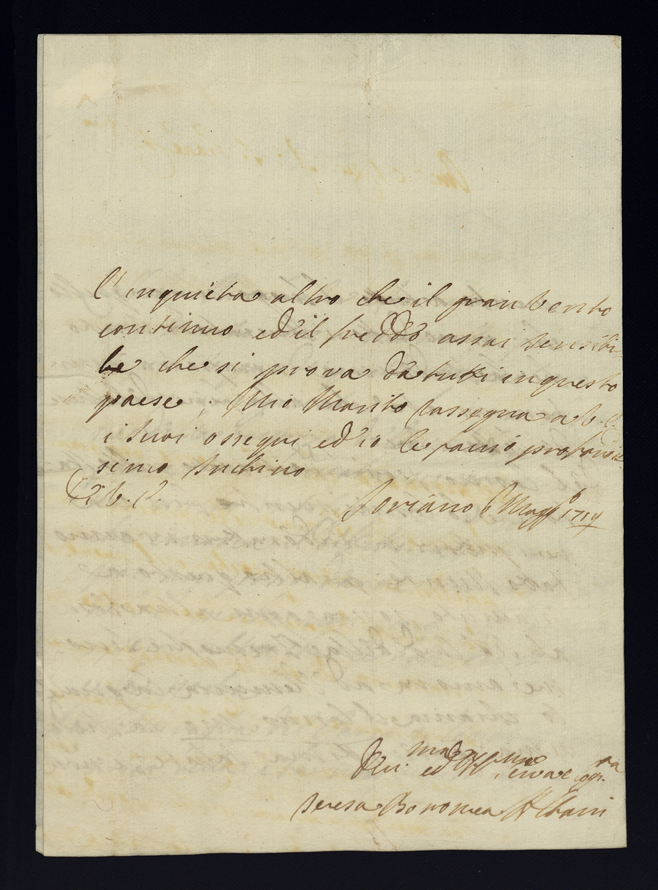 l'inquieta altro che il gran vento
continuo ed'il freddo assai sensibi
le che si prova da tutti in questo
paese; Mio Marito rassegna a V. E.
i suoi ossequi ed'io le faccio profondis
simo Inchino
D. V. E.
Soriano 6 Maggo 1719
Teresa Boromea Albani